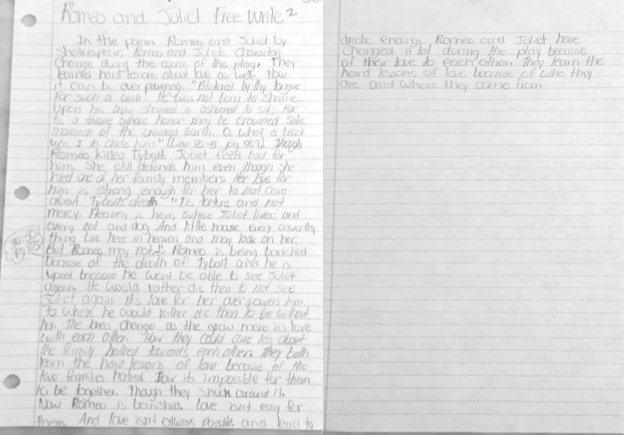 Romeo and Joliet Free Write 2
In the poem Romeo and Joliet by
Shakespear, Romeo and Joliet Character
Change during the couse of the play. They
learned hard lessons about love as well. How
it can be over powering. "Blistered by thy tongue
For such a wish. He was not born to shame.
Upon his brow shamed is ashamed to sit: For
tis a throne where honor may be crowned Sole
monarch of the universal Earth. O what a beast
was I to chide him" (Line pg Though
Romeo killed Tybalt. Joliet feels bad for
him. She still defends him even though she
killed one of her family members. Her love for
him is strong enough for her to not care
about Tybolts death. "Tis torture and not
mercy. Heaven is here, where Joliet lives: and
every cat and dog And little mouse, every unworthy
thing Live here in heaven and may look on her,
But Romeo may not." Romeo is being banished
because of the death of Tybalt and he is
upset because he wont be able to see Joliet
again. He would rather die then to not see
Joliet again. His love for her over powers him
to where he would rather die then to be without
her. The lovers change as the grow more in love
with each other. How they could care less about
the family hatred towards each other. They both
learn the hard lessons of love because of the
two families hatred. How its impossible for them
to be together. Though they snuck around it.
Now Romeo is banished. Love isnt easy for
them. And love isn't always possible and lead to
drastic endings. Romeo and Joliet have
changed a lot during the play because
of their love to each other. They learn the
hard lessons of love because of who they
are and where they come from.